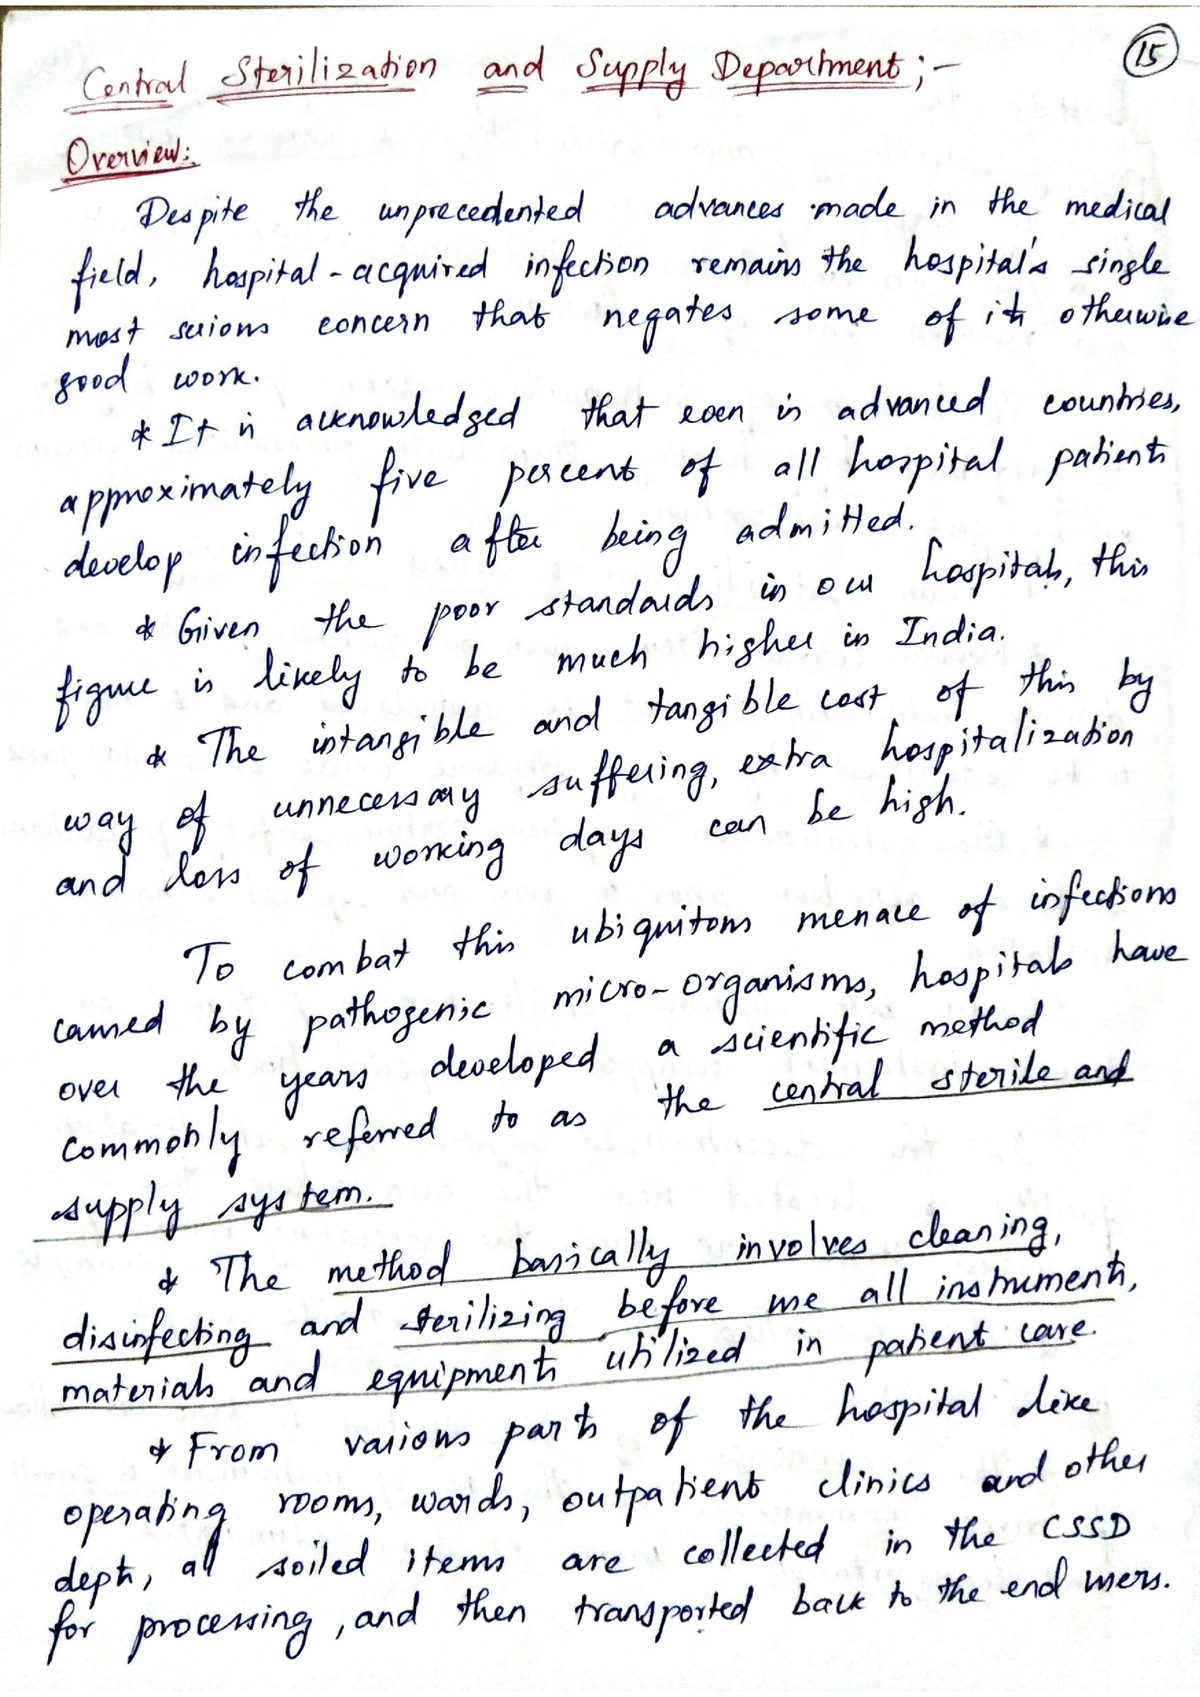 15
Central Sterilization and Supply Department ;-
Overview:
Despite the unprecedented advances made in the medical
field, hospital-acquired infection remains the hospital's single
most serious concern that negates some of its otherwise
good work.
* It is acknowledged that even in advanced countries,
approximately five percent of all hospital patients
develop infection after being admitted.
* Given the poor standards in our hospitals, this
figure is likely to be much higher in India.
* The intangible and tangible cost of this by
way of unnecessary suffering, extra hospitalization
and loss of working days can be high.
To combat this ubiquitous menace of infections
caused by pathogenic micro-organisms, hospitals have
over the years developed a scientific method
commonly referred to as the central sterile and
supply system.
* The method basically involves cleaning,
disinfecting and sterilizing before use all instruments,
materials and equipments utilized in patient care.
* From various parts of the hospital like
operating rooms, wards, outpatient clinics and other
depts, all soiled items are collected in the CSSD
for processing, and then transported back to the end users.